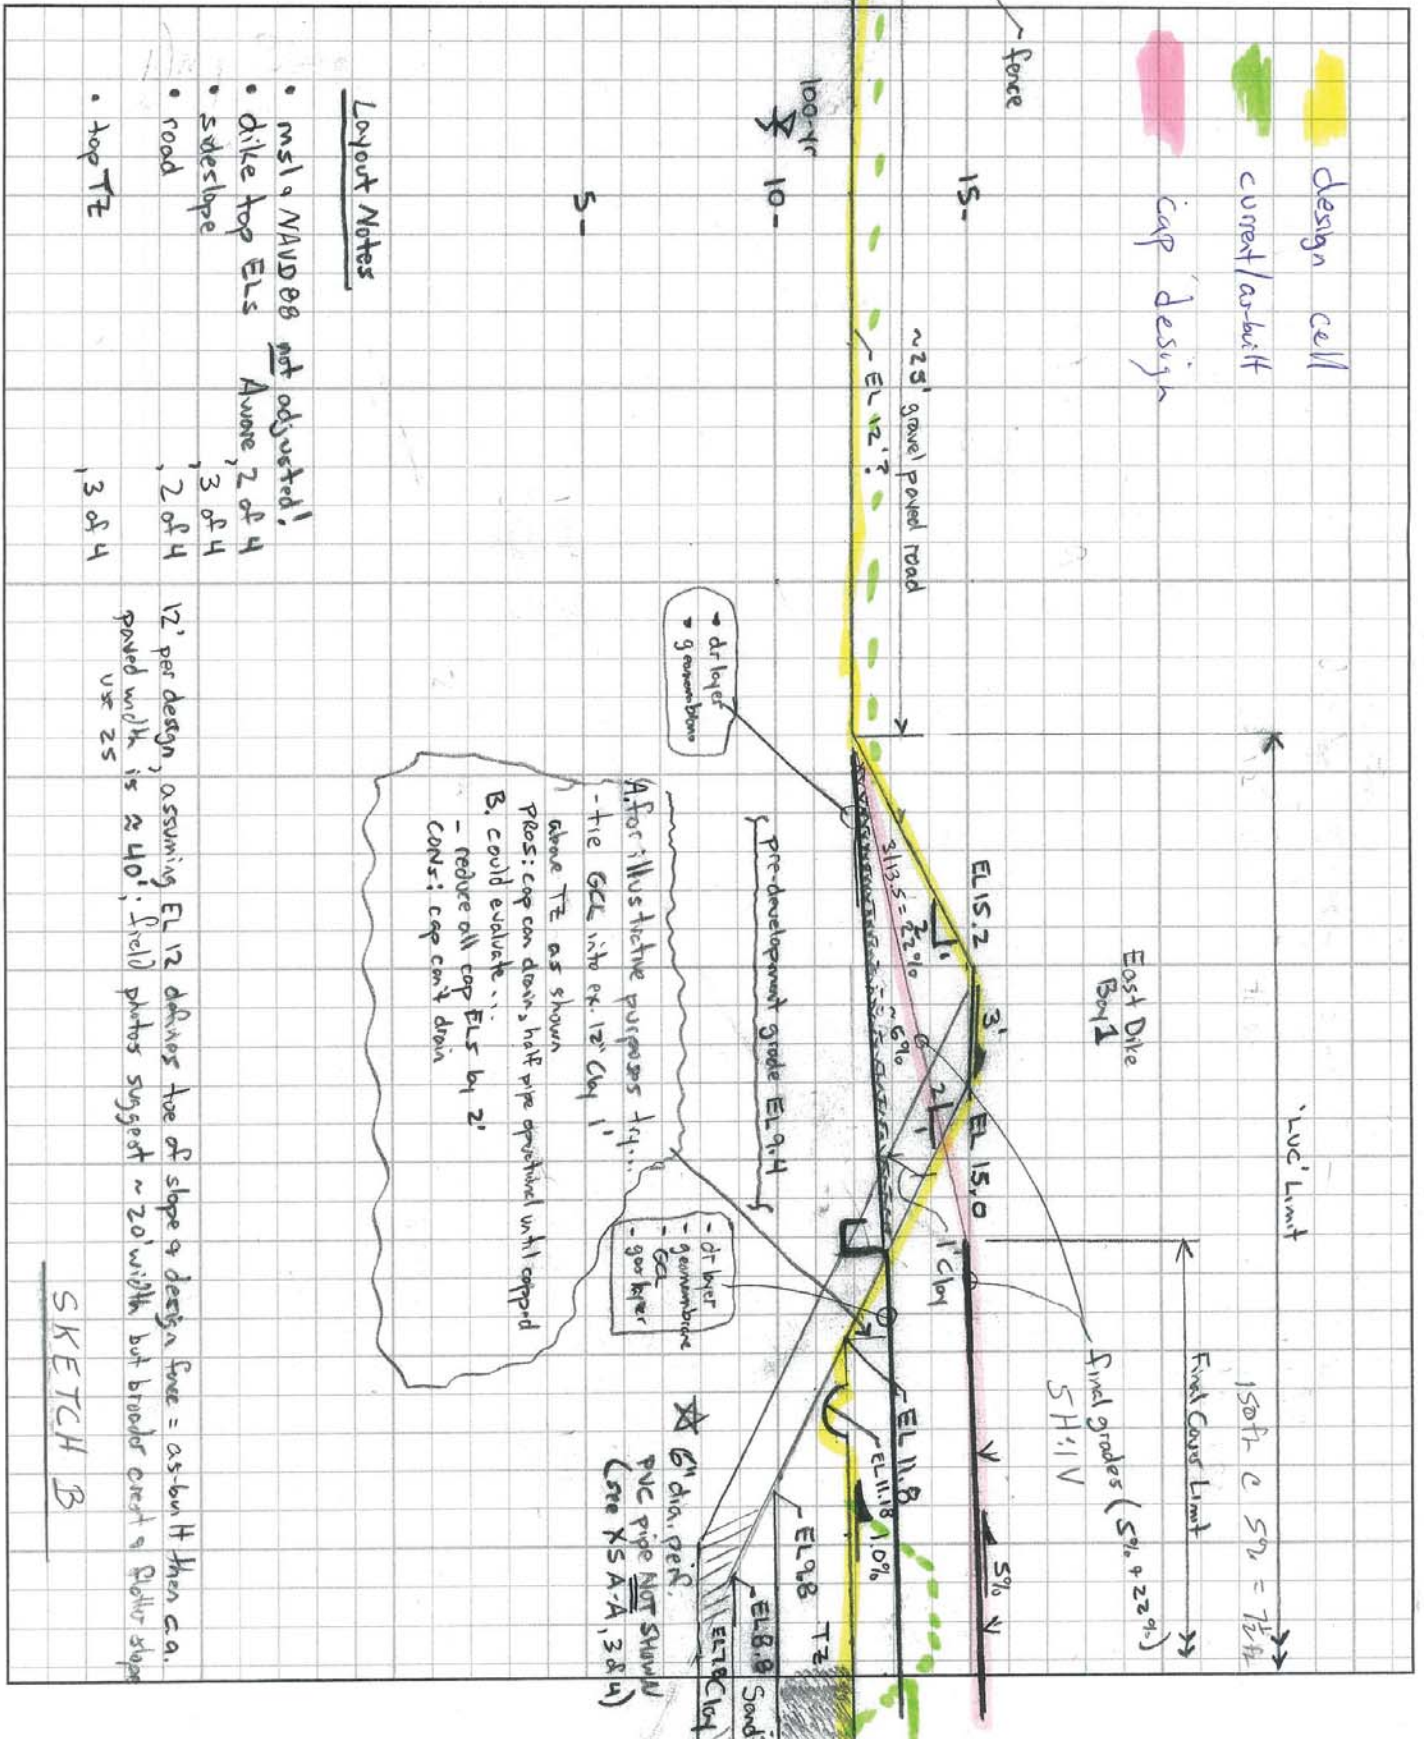 design cell
current/as-built
cap design
fence
15-
10-
5-
100-yr
~25' gravel paved road
EL 12'?
'LUC' Limit
150ft @ 5% = 7½ ft
Final Cover Limit
final grades (5% & 22%)
5H:1V
East Dike
Bay 1
EL15.2
3'
EL 15.0
2
1
2
1
3/13.5' = 22%
~6%
1' Clay
5%
EL 11.8
EL11.18
1.0%
EL9.8
TZ
EL8.8 Sand
EL7.8 Clay
pre-development grade EL9.4
- dr layer
- geomembrane
- dr layer
- geomembrane
- GCL
- gas layer
☆ 6" dia. perf.
PVC pipe NOT SHOWN
(see XS A-A, 3 of 4)
A. for illustrative purposes try...
- tie GCL into ex. 12" Clay 1'
above TZ as shown
PROS: cap can drain, half pipe operational until capped
B. could evaluate...
- reduce all cap ELs by 2'
CONS: cap can't drain
Layout Notes
• msl & NAVD88 not adjusted!
• dike top ELs Aware, 2 of 4
• sideslope , 3 of 4
• road , 2 of 4
• top TZ , 3 of 4
12' per design, assuming EL 12 defines toe of slope & design fence = as-built then ca.
paved width is ≈ 40'; field photos suggest ~20' width but broader crest & flatter slope
use 25
SKETCH B